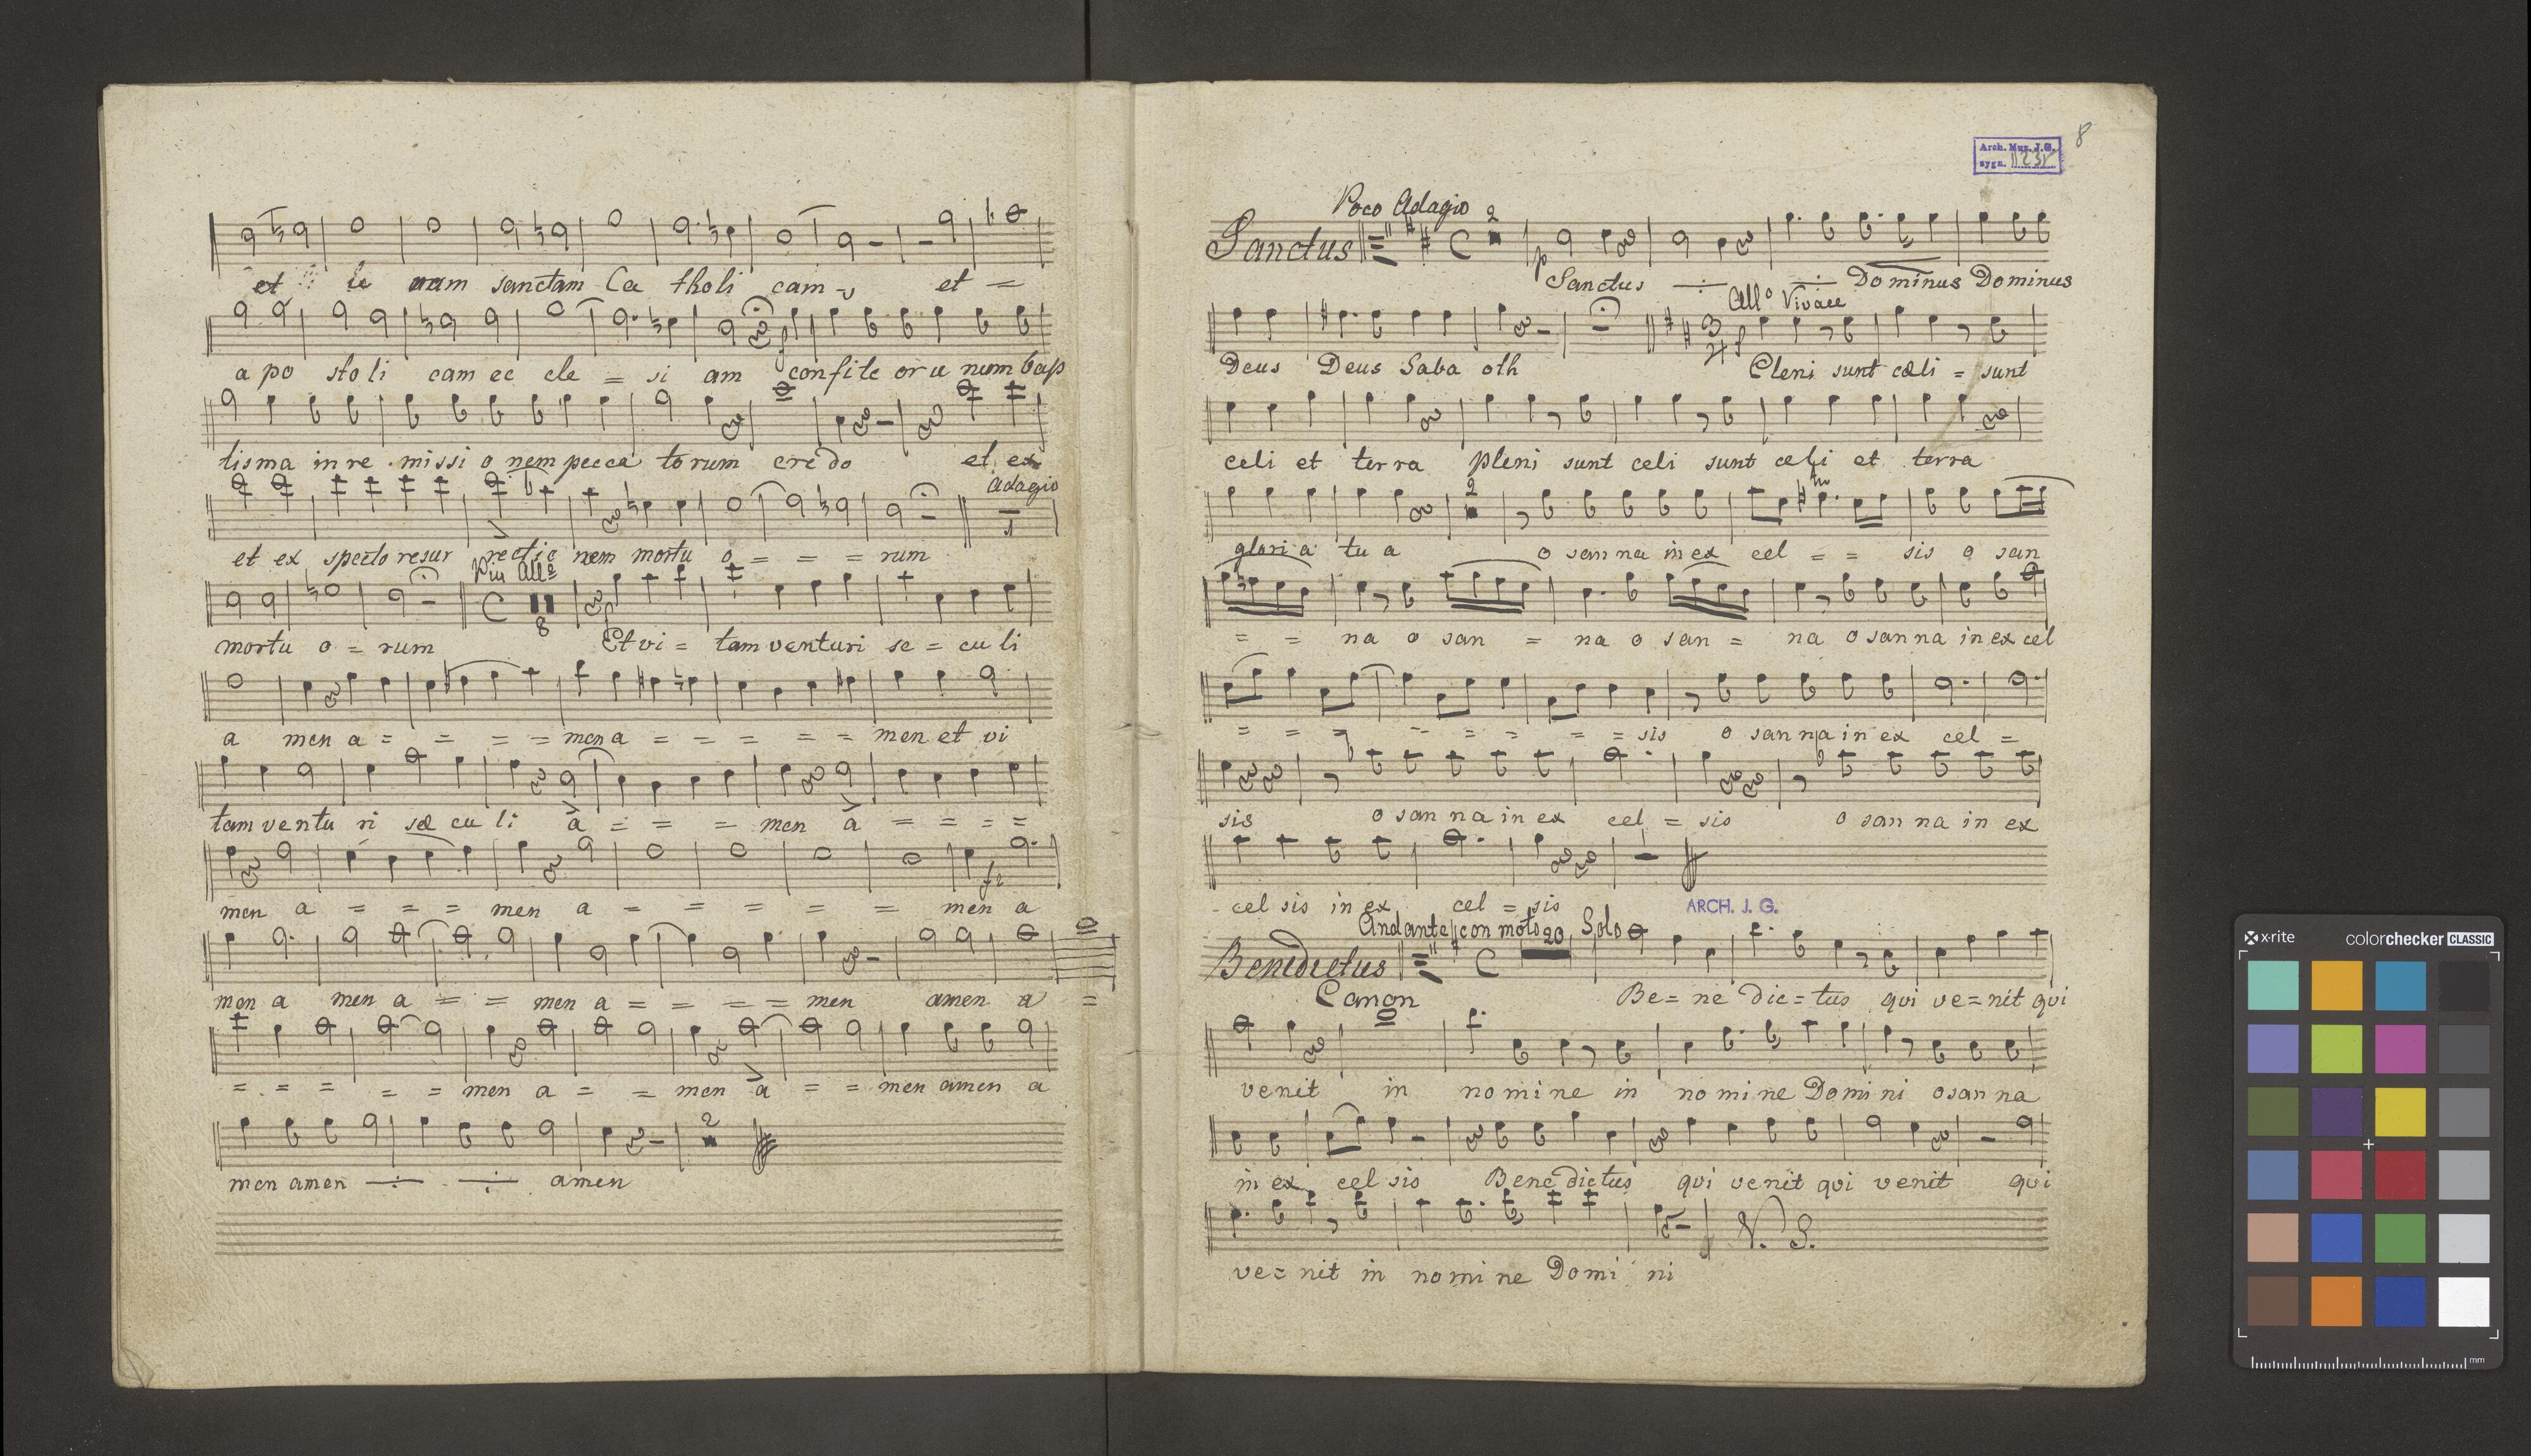 et le nam sanctam Ca tholi cam et =
a po sto li cam ec cle = si am confite or u num bap
tis ma in re missi o nem pecca to rum cre do et ex
Adagio
et ex specto resur rectio nem mortu o = = = rum
Piu Allo
8
mortu o = rum Et vi = tam venturi se = cu li
a men a = = = = men a = = = = = men et vi
tam ventu ri sæ cu li a = = = men a = = = =
men a = = = men a = = = = = men a
men a men a = = men a = = = = men amen a =
= = = = = men a = = men a = = men amen a
2
men amen amen
8
Arch. Muz. J.G.
sygn.
Poco Adagio
2
Sanctus C
p Sanctus Dominus Dominus
Allo Vivace
3 4 f
Deus Deus Saba oth Pleni sunt cæli = sunt
celi et ter ra pleni sunt celi sunt celi et terra
2 tr
glori a tu a o san na in ex cel = = sis o san
= = na o san = na o san = na o san na in ex cel
= = = = = = = = sis o san na in ex cel =
sis o san na in ex cel = sis o san na in ex
cel sis in ex cel = sis
ARCH. J. G.
Andante con moto 20 Solo
Benedictus C
Canon Be = ne dic = tus qui ve = nit qui
venit in no mi ne in no mi ne Domi ni osan na
in ex cel sis Bene dictus qui venit qui venit qui
V. S.
ve = nit in no mi ne Domi ni
x-rite
colorchecker CLASSIC
mm